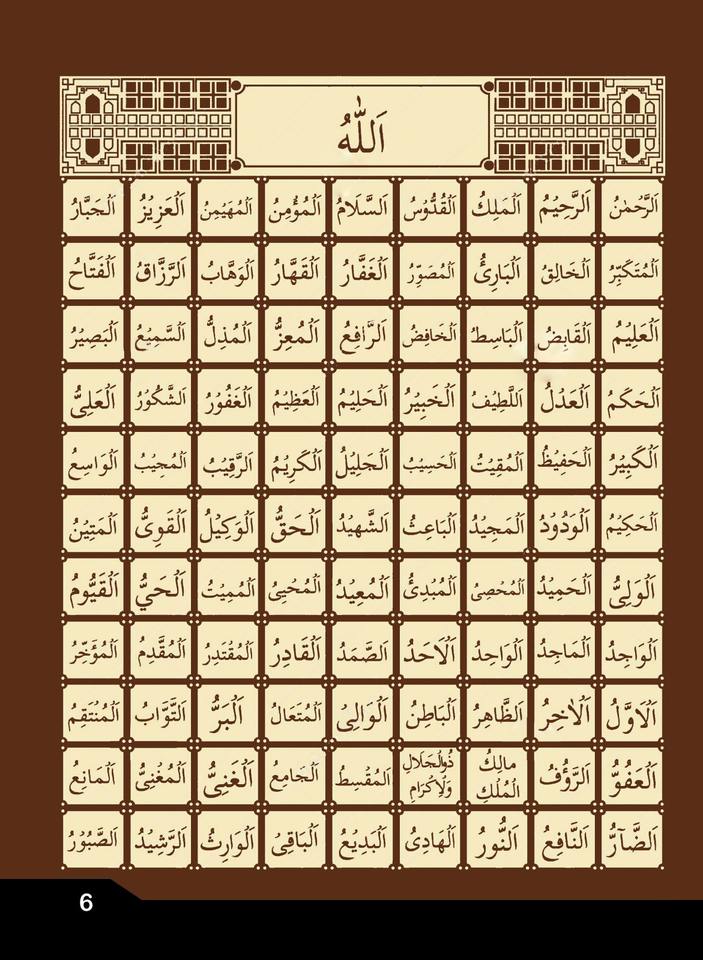 اَللّٰهُ
اَلرَّحْمٰنُ اَلرَّحِيْمُ اَلْمَلِكُ اَلْقُدُّوْسُ اَلسَّلَامُ اَلْمُؤْمِنُ اَلْمُهَيْمِنُ اَلْعَزِيْزُ اَلْجَبَّارُ
اَلْمُتَكَبِّرُ اَلْخَالِقُ اَلْبَارِئُ اَلْمُصَوِّرُ اَلْغَفَّارُ اَلْقَهَّارُ اَلْوَهَّابُ اَلرَّزَّاقُ اَلْفَتَّاحُ
اَلْعَلِيْمُ اَلْقَابِضُ اَلْبَاسِطُ اَلْخَافِضُ اَلرَّافِعُ اَلْمُعِزُّ اَلْمُذِلُّ اَلسَّمِيْعُ اَلْبَصِيْرُ
اَلْحَكَمُ اَلْعَدْلُ اَللَّطِيْفُ اَلْخَبِيْرُ اَلْحَلِيْمُ اَلْعَظِيْمُ اَلْغَفُوْرُ اَلشَّكُوْرُ اَلْعَلِىُّ
اَلْكَبِيْرُ اَلْحَفِيْظُ اَلْمُقِيْتُ اَلْحَسِيْبُ اَلْجَلِيْلُ اَلْكَرِيْمُ اَلرَّقِيْبُ اَلْمُجِيْبُ اَلْوَاسِعُ
اَلْحَكِيْمُ اَلْوَدُوْدُ اَلْمَجِيْدُ اَلْبَاعِثُ اَلشَّهِيْدُ اَلْحَقُّ اَلْوَكِيْلُ اَلْقَوِىُّ اَلْمَتِيْنُ
اَلْوَلِىُّ اَلْحَمِيْدُ اَلْمُحْصِىُ اَلْمُبْدِئُ اَلْمُعِيْدُ اَلْمُحْيِىُ اَلْمُمِيْتُ اَلْحَيُّ اَلْقَيُّوْمُ
اَلْوَاجِدُ اَلْمَاجِدُ اَلْوَاحِدُ اَلْاَحَدُ اَلصَّمَدُ اَلْقَادِرُ اَلْمُقْتَدِرُ اَلْمُقَدِّمُ اَلْمُؤَخِّرُ
اَلْاَوَّلُ اَلْاٰخِرُ اَلظَّاهِرُ اَلْبَاطِنُ اَلْوَالِىُ اَلْمُتَعَالُ اَلْبَرُّ اَلتَّوَّابُ اَلْمُنْتَقِمُ
اَلْعَفُوُّ اَلرَّؤُفُ مَالِكُ الْمُلْكِ ذُوالْجَلَالِ وَالْاِكْرَامِ اَلْمُقْسِطُ اَلْجَامِعُ اَلْغَنِىُّ اَلْمُغْنِىُّ اَلْمَانِعُ
اَلضَّآرُّ اَلنَّافِعُ اَلنُّوْرُ اَلْهَادِىُ اَلْبَدِيْعُ اَلْبَاقِىُ اَلْوَارِثُ اَلرَّشِيْدُ اَلصَّبُوْرُ
6